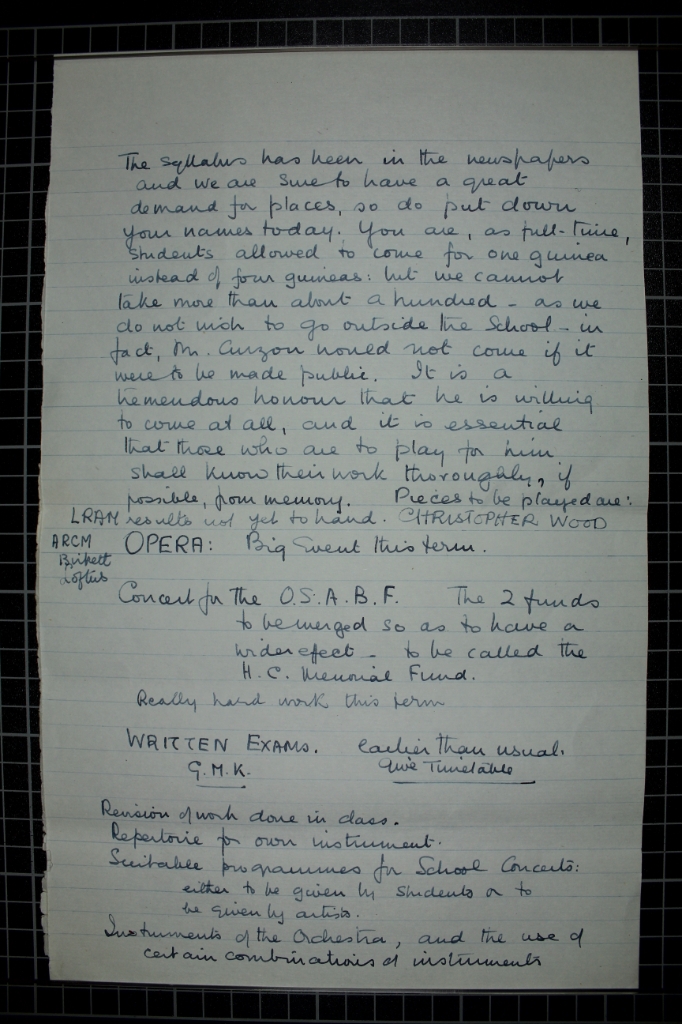 The syllabus has been in the newspapers
and we are sure to have a great
demand for places, so do put down
your names today. You are, as full-time,
students allowed to come for one guinea
instead of four guineas: but we cannot
take more than about a hundred - as we
do not wish to go outside the School - in
fact, Mr. Curzon would not come if it
were to be made public. It is a
tremendous honour that he is willing
to come at all, and it is essential
that those who are to play for him
shall know their work thoroughly, if
possible, from memory. Pieces to be played are:
LRAM results not yet to hand. CHRISTOPHER WOOD
ARCM OPERA: Big Event this term.
Birkett
Loftus
Concert for the O.S.A.B.F. The 2 funds
to be merged so as to have a
wider effect - to be called the
H.C. Memorial Fund.
Really hard work this term
WRITTEN EXAMS. Earlier than usual.
G.M.K. Give Timetable
Revision of work done in class.
Repertoire for own instrument.
Suitable programmes for School Concerts:
either to be given by students or to
be given by artists.
Instruments of the Orchestra, and the use of
certain combinations of instruments